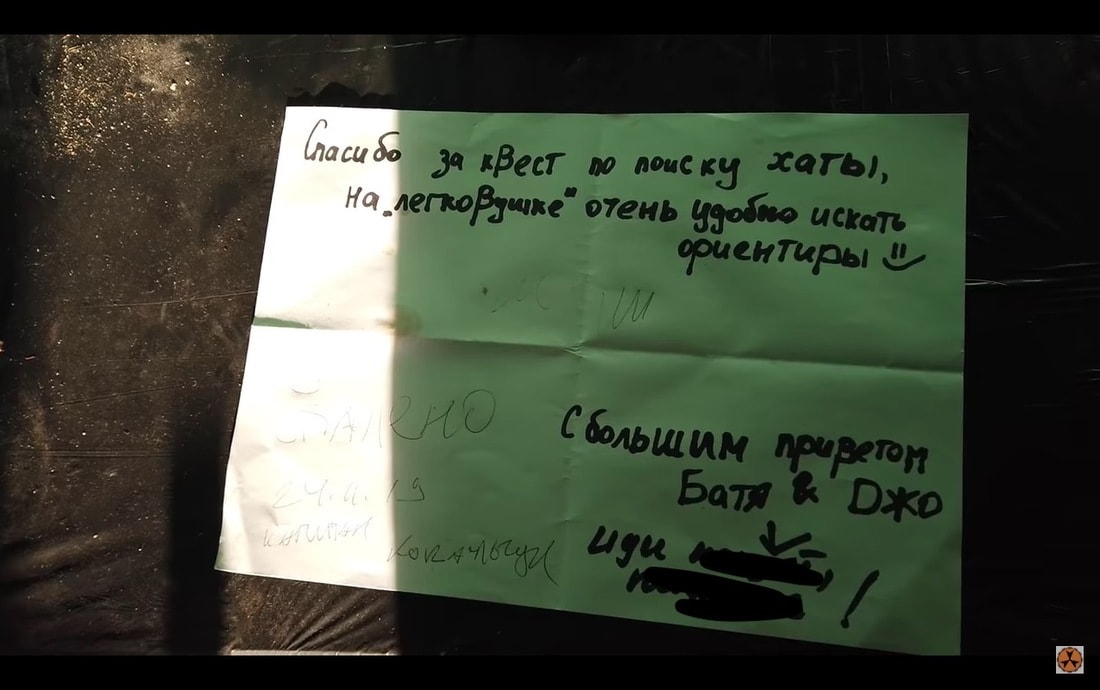 Спасибо за квест по поиску хаты,
на „легковушке" очень удобно искать
ориентиры
С большим приветом
Батя & Джо
иди
!
ПАЛЕНО
24.11.19
КАПИТАН